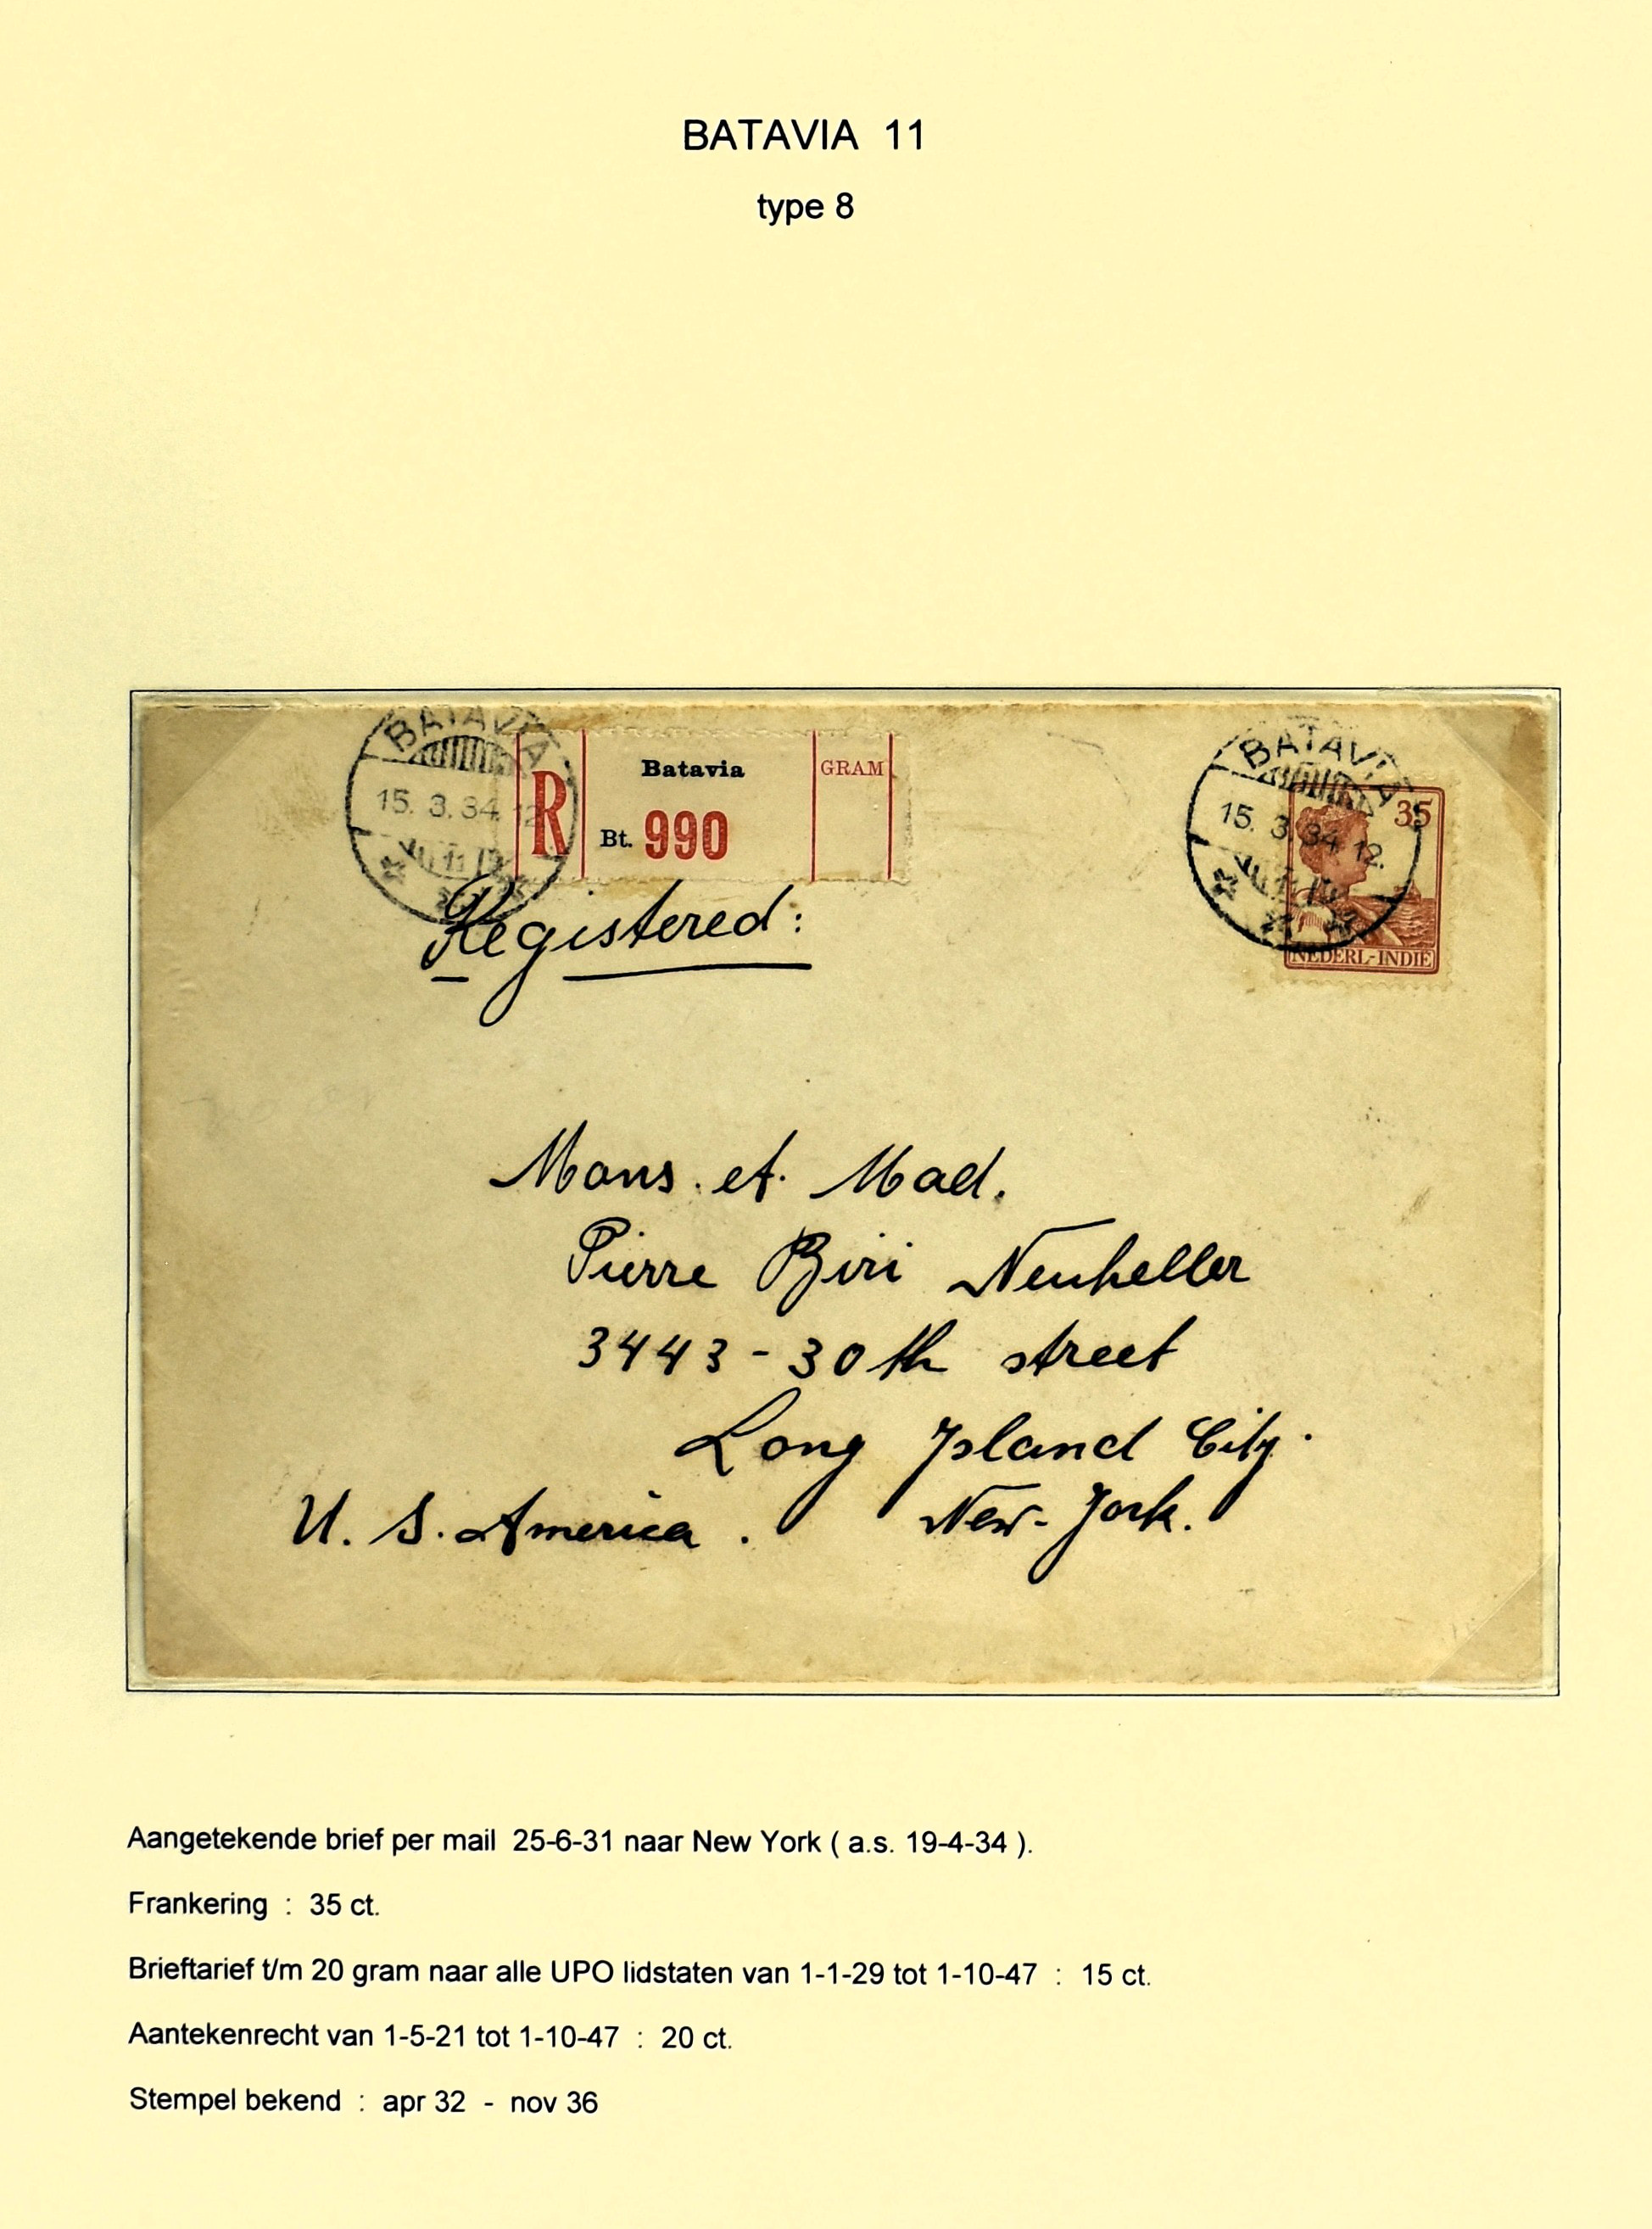 BATAVIA 11
type 8
BATAVIA
15. 3. 34. 12
11
R
Batavia
Bt. 990
GRAM
BATAVIA
15. 3. 34. 12.
11
35
NEDERL-INDIË
Registered:
Mons. et. Mad.
Pierre Biri Neuheller
3443 - 30th street
Long Island City.
New-York.
U. S. America.
Aangetekende brief per mail 25-6-31 naar New York ( a.s. 19-4-34 ).
Frankering : 35 ct.
Brieftarief t/m 20 gram naar alle UPO lidstaten van 1-1-29 tot 1-10-47 : 15 ct.
Aantekenrecht van 1-5-21 tot 1-10-47 : 20 ct.
Stempel bekend : apr 32 - nov 36